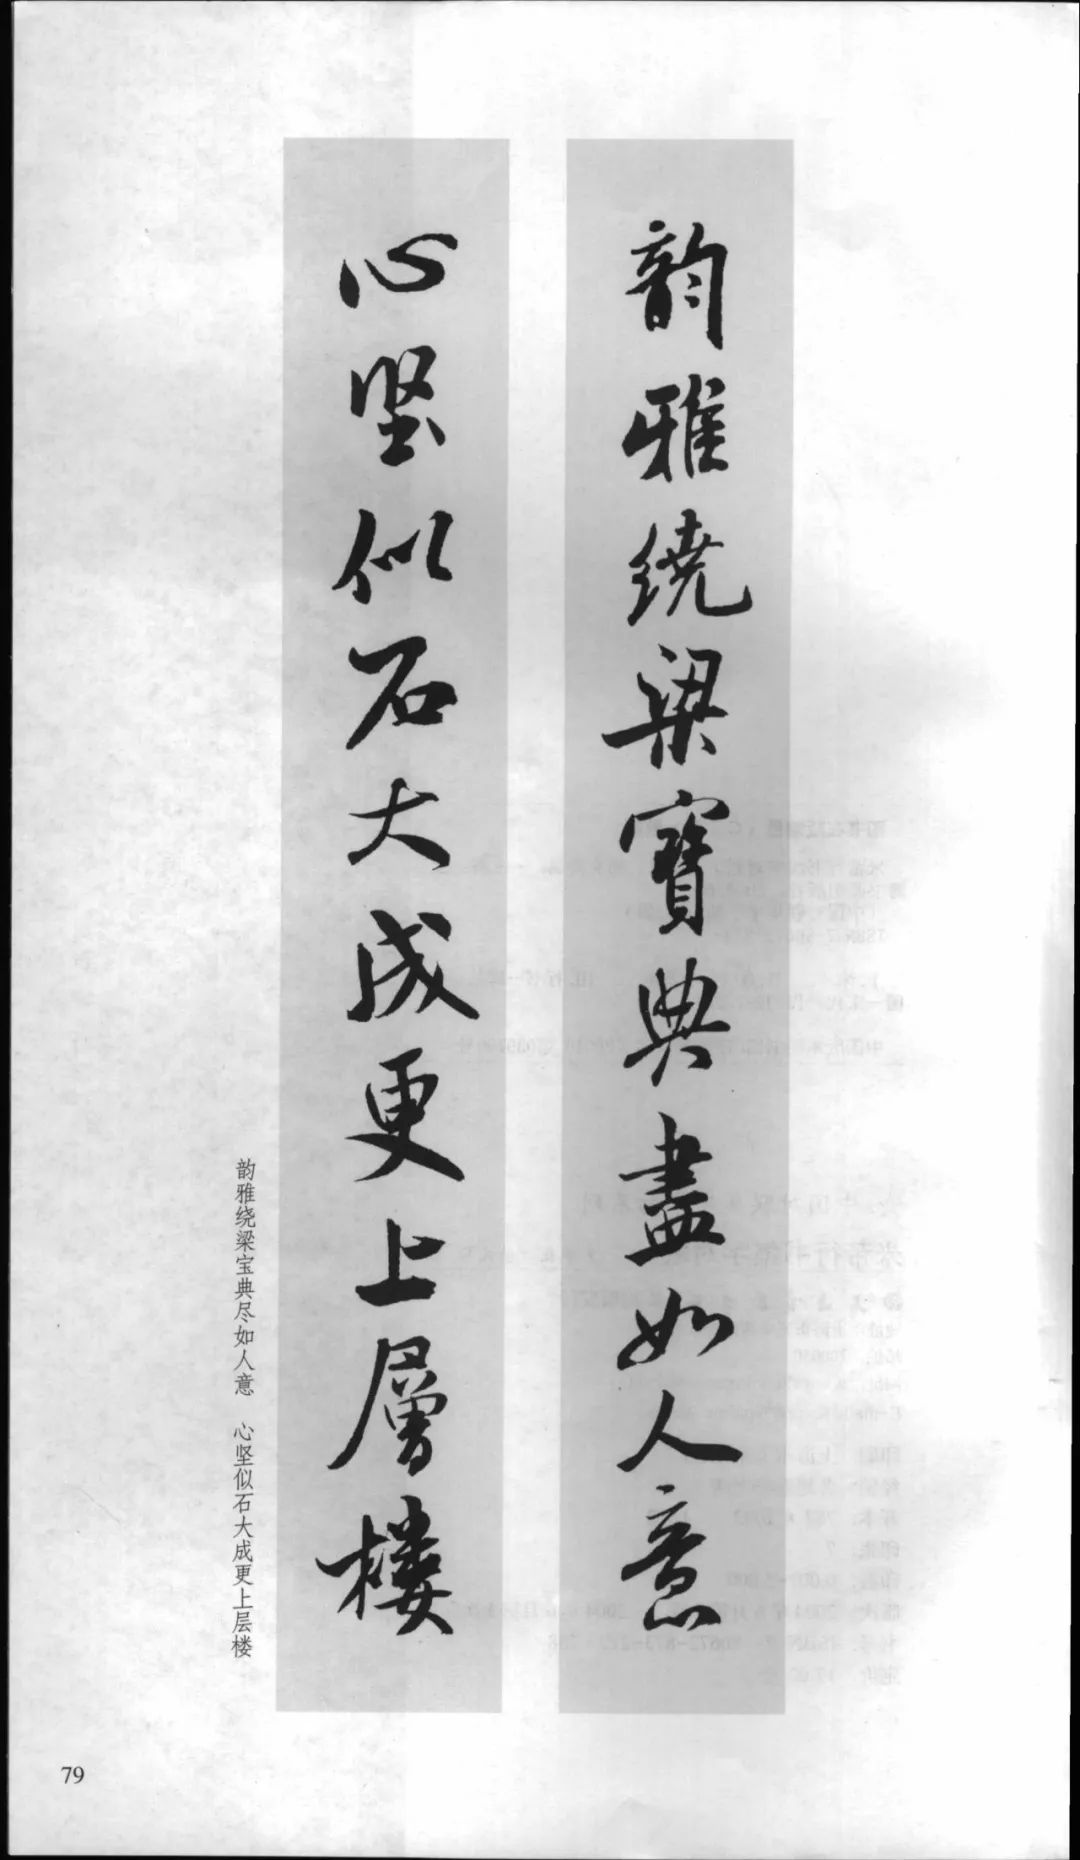 韵雅绕梁寳典盡如人意
心坚似石大成更上層楼
韵雅绕梁宝典尽如人意 心坚似石大成更上层楼
79